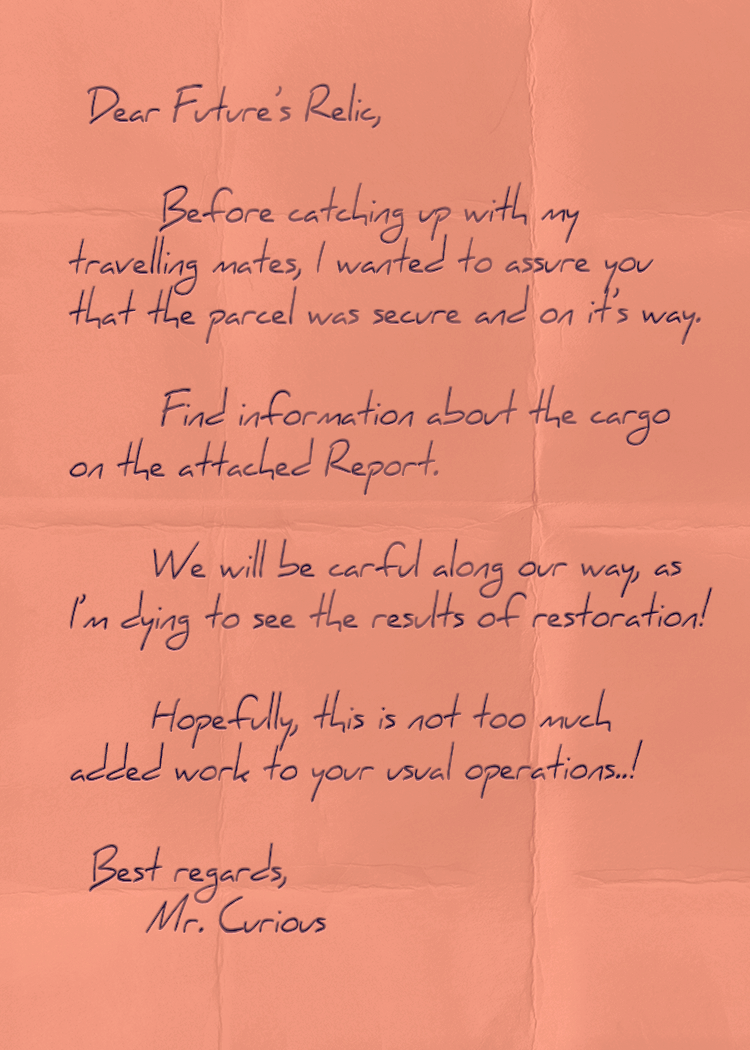 Dear Future's Relic,
Before catching up with my
travelling mates, I wanted to assure you
that the parcel was secure and on it's way.
Find information about the cargo
on the attached Report.
We will be carful along our way, as
I'm dying to see the results of restoration!
Hopefully, this is not too much
added work to your usual operations..!
Best regards,
Mr. Curious